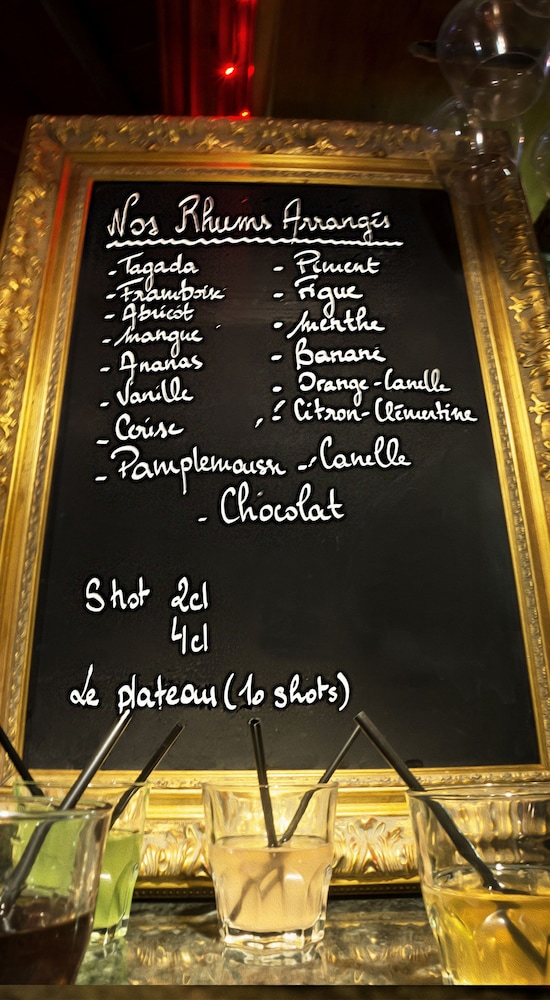 Nos Rhums Arrangés
- Tagada
- Framboise
- Abricot
- Mangue
- Ananas
- Vanille
- Cerise
- Pamplemousse
- Piment
- Figue
- Menthe
- Banane
- Orange-Canelle
- Citron-Clémentine
- Canelle
- Chocolat
Shot 2cl
4cl
Le plateau (10 shots)